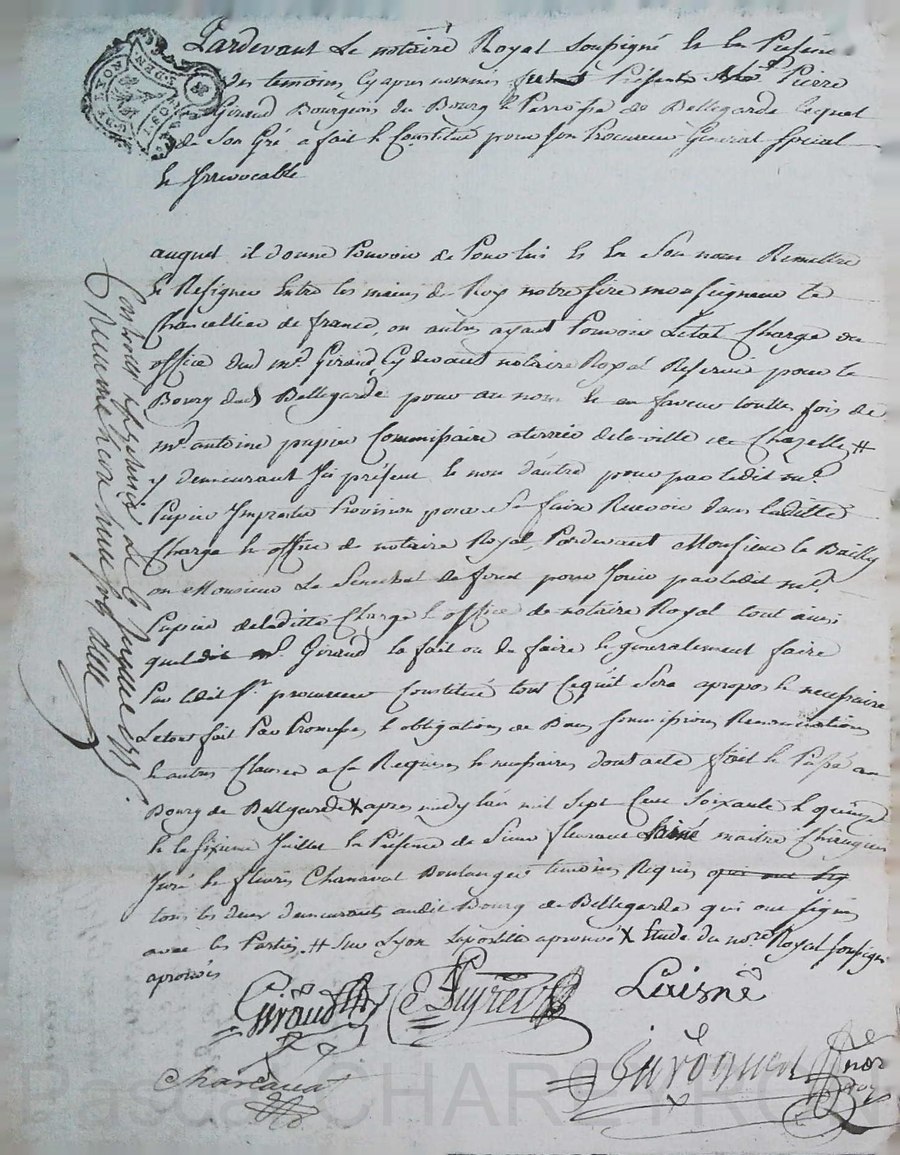 Pardevant Le notaire Royal soussigné & En Présence
des temoins Cyapres nommés fut Présent Me Pierre
Giraud Bourgeois du Bourg & Perroisse de Bellegarde lequel
de Son Gré a fait & Constitué pour son Procureur General special
& Irrevocable
auquel il donne Pouvoir de Pour luy & En Son nom Remettre
& Resigner Entre les mains du Roy notre sire monseigneur le
Chancellier de france, ou autres ayant Pouvoir L'etat Charge ou
office dud. me. Giraud Cydevant notaire Royal Reservé pour le
Bourg dud Bellegarde pour au nom & en faveur touttes fois de
me. antoine pupier Commissaire a terrier de la ville de Chazelle #
y demeurant Ici présent & non d'autre pour par ledit me.
Pupier Impestrer Provision pour Se faire Recevoir dans laditte
Charge & office de notaire Royal, Pardevant Monsieur le Bailly
ou Monsieur Le Senechal de forez pour Jouir par ledit me.
Pupier de laditte Charge & office de notaire Royal tout ainsi
que ledit me. Giraud la fait ou du faire & generalement faire
Par ledit Sr. procureur Constitué tout Cequil Sera apropos & necessaire
Le tout fait Par Promesses & obligations de Biens soumissions Renonciations
& autres Clauses a Ce Requises & necessaires dont acte fait & Passé au
Bourg de Bellegarde X apres midy L'an mil Sept Cent Soixante & quinze
& le sixieme Juillet En Présence de Sieur fleurant Laisné maitre Chirurgien
Juré & fleuris Chanavat Boulanger temoins Requis qui ont sig
tous les deux demeurants audit Bourg de Bellegarde qui ont signé
avec les Parties # Sur Lyon apostille aprouvé X Etude du nore Royal soussigné
aprouvés
Giraud
Pupier
Laisné
Chanavat
nore
roy
Pascal CHAREYRON